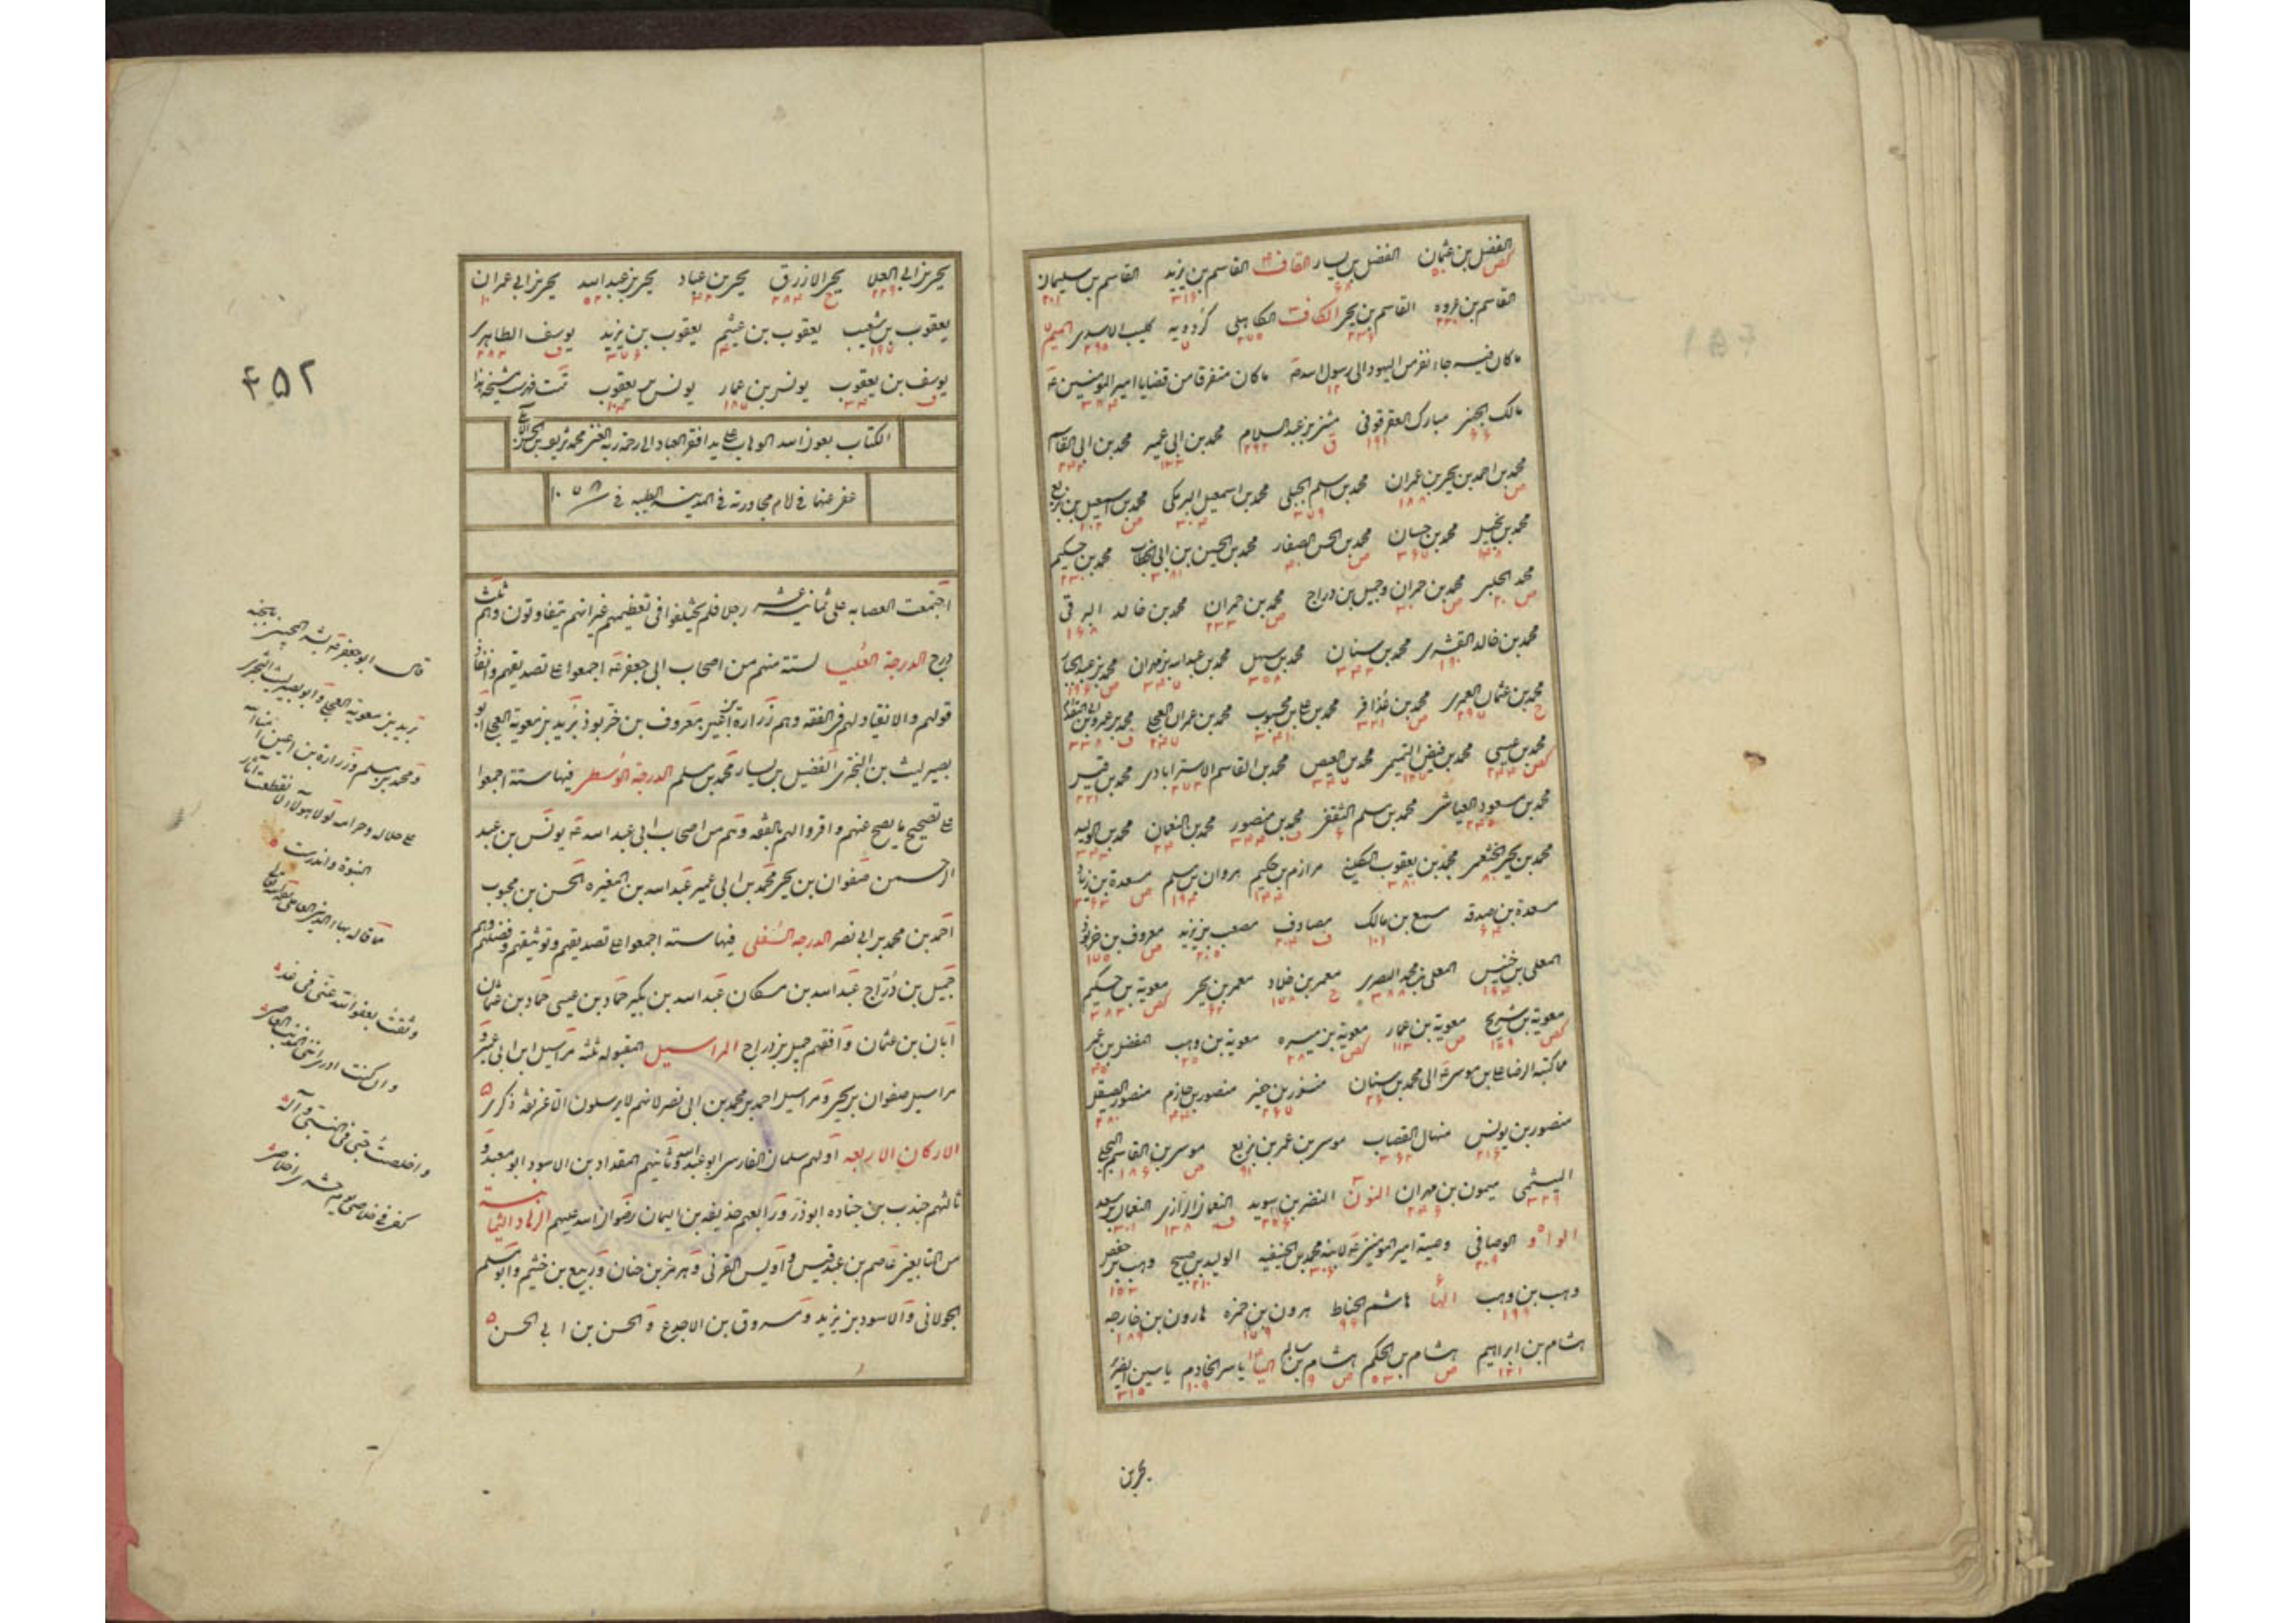 الفضل بن عثمان الفضل بن يسار القاف القاسم بن يزيد القاسم بن سليمان
القاسم بن عروه القاسم بن يحيى الكاف الكاهلى كردويه كليب الاسدى الميم
ما كان فيه جاء نفر من اليهود الى رسول الله ما كان متفرقا من قضايا امير المؤمنين
مالك الجهنى مبارك العقرقوفى مثنى بن عبد السلام محمد بن ابى عمير محمد بن ابى القاسم
محمد بن احمد بن يحيى بن عمران محمد بن اسلم الجبلى محمد بن اسمعيل البرمكى محمد بن اسمعيل بن بزيع
محمد بن بجيل محمد بن حسان محمد بن الحسن الصفار محمد بن الحسين بن ابى الخطاب محمد بن حكيم
محمد الحلبى محمد بن حمران وجميل بن دراج محمد بن حمران محمد بن خالد البرقى
محمد بن خالد القسرى محمد بن سنان محمد بن سهل محمد بن عبد الله بن مهران محمد بن عبد الجبار
محمد بن عثمان العمرى محمد بن عذافر محمد بن على بن محبوب محمد بن عمران العجلى محمد بن عمرو بن ابى المقدام
محمد بن عيسى محمد بن فيض التيمى محمد بن الفيض محمد بن القاسم الاسترابادى محمد بن قيس
محمد بن مسعود العياشى محمد بن مسلم الثقفى محمد بن منصور محمد بن النعمان محمد بن الوليد
محمد بن يحيى الخثعمى محمد بن يعقوب الكلينى مرازم بن حكيم مروان بن مسلم مسعدة بن زياد
مسعدة بن صدقه مسمع بن مالك مصادف مصعب بن يزيد معروف بن خربوذ
المعلى بن خنيس المعلى بن محمد البصرى معمر بن خلاد معمر بن يحيى معوية بن حكيم
معوية بن شريح معوية بن عمار معوية بن ميسره معوية بن وهب المفضل بن عمر
ما كتبه الرضا على بن موسى الى محمد بن سنان منذر بن جيفر منصور بن حازم منصور الصيقل
منصور بن يونس منهال القصاب موسى بن عمر بن بزيع موسى بن القاسم البجلى
الميثمى ميمون بن مهران النون النضر بن سويد النعمان الرازى النعمان بن سعد
الواو الوصافى وصية امير المؤمنين لابنه محمد بن الحنفيه الوليد بن صبيح وهب بن حفص
وهب بن وهب الها هاشم الحناط هرون بن حمزه هارون بن خارجه
هشام بن ابراهيم هشام بن الحكم هشام بن سالم اليا ياسر الخادم ياسين الضرير
يحيى بن
يحيى بن ابى العلا يحيى الازرق يحيى بن عباد يحيى بن عبد الله يحيى بن ابى عمران
يعقوب بن شعيب يعقوب بن عيثم يعقوب بن يزيد يوسف الطاهرى
يوسف بن يعقوب يونس بن عمار يونس بن يعقوب تمت فهرست مشيخة هذا
الكتاب بعون الله الوهاب على يد افقر العباد الى رحمة ربه الغنى محمد شريف بن
عفى عنهما فى ايام مجاورته فى المدينة الطيبه فى ١٠٥٨
٤٥٢
اجتمعت العصابه على ثمانية عشر رجلا فلم يختلفوا فى تعظيمهم غير انهم يتفاوتون وهم ثلث
درج الدرجة العليا لستة منهم من اصحاب ابى جعفر اجمعوا على تصديقهم وانفاذ
قولهم والانقياد لهم فى الفقه وهم زرارة بن اعين معروف بن خربوذ بريد بن معوية العجلى ابو
بصير ليث بن البخترى الفضيل بن يسار محمد بن مسلم الدرجة الوسطى فيها ستة اجمعوا
على تصحيح ما يصح عنهم واقروا لهم بالفقه وهم من اصحاب ابى عبد الله يونس بن عبد
الرحمن صفوان بن يحيى محمد بن ابى عمير عبد الله بن المغيره الحسن بن محبوب
احمد بن محمد بن ابى نصر الدرجه السفلى فيها ستة اجمعوا على تصديقهم وتوثيقهم وفضلهم وهم
جميل بن دراج عبد الله بن مسكان عبد الله بن بكير حماد بن عيسى حماد بن عثمان
ابان بن عثمان وافقهم جميل بن دراج المراسيل المقبوله ثلثه مراسيل ابن ابى عمير و
مراسيل صفوان بن يحيى ومراسيل احمد بن محمد بن ابى نصر لانهم لا يرسلون الا عن ثقه
الاركان الاربعه اولهم سلمان الفارسى ابو عبد الله وثانيهم المقداد بن الاسود ابو معبد و
ثالثهم جندب بن جناده ابو ذر ورابعهم حذيفه بن اليمان رضوان الله عليهم الزهاد الثمانية
من التابعين عاصم بن عبد قيس واويس القرنى وهرم بن حنان وربيع بن خثيم وابو مسلم
الجولانى والاسود بن يزيد ومسروق بن الاجدع والحسن بن ابى الحسن
قال ابو جعفر بشر المخبتين بالجنه
بريد بن معوية العجلى وابو بصير ليث البخترى
ومحمد بن مسلم وزرارة بن اعين امناء الله
على حلاله وحرامه لولا هولاء لانقطعت آثار
النبوة واندرست
مما قاله بهاء الدين العاملى
وثقت بعفو الله عنى فى غد
وان كنت ادرى اننى المذنب العاصى
واخلصت حبى فى النبى وآله
كفى فى خلاصى يوم حشرى اخلاصى